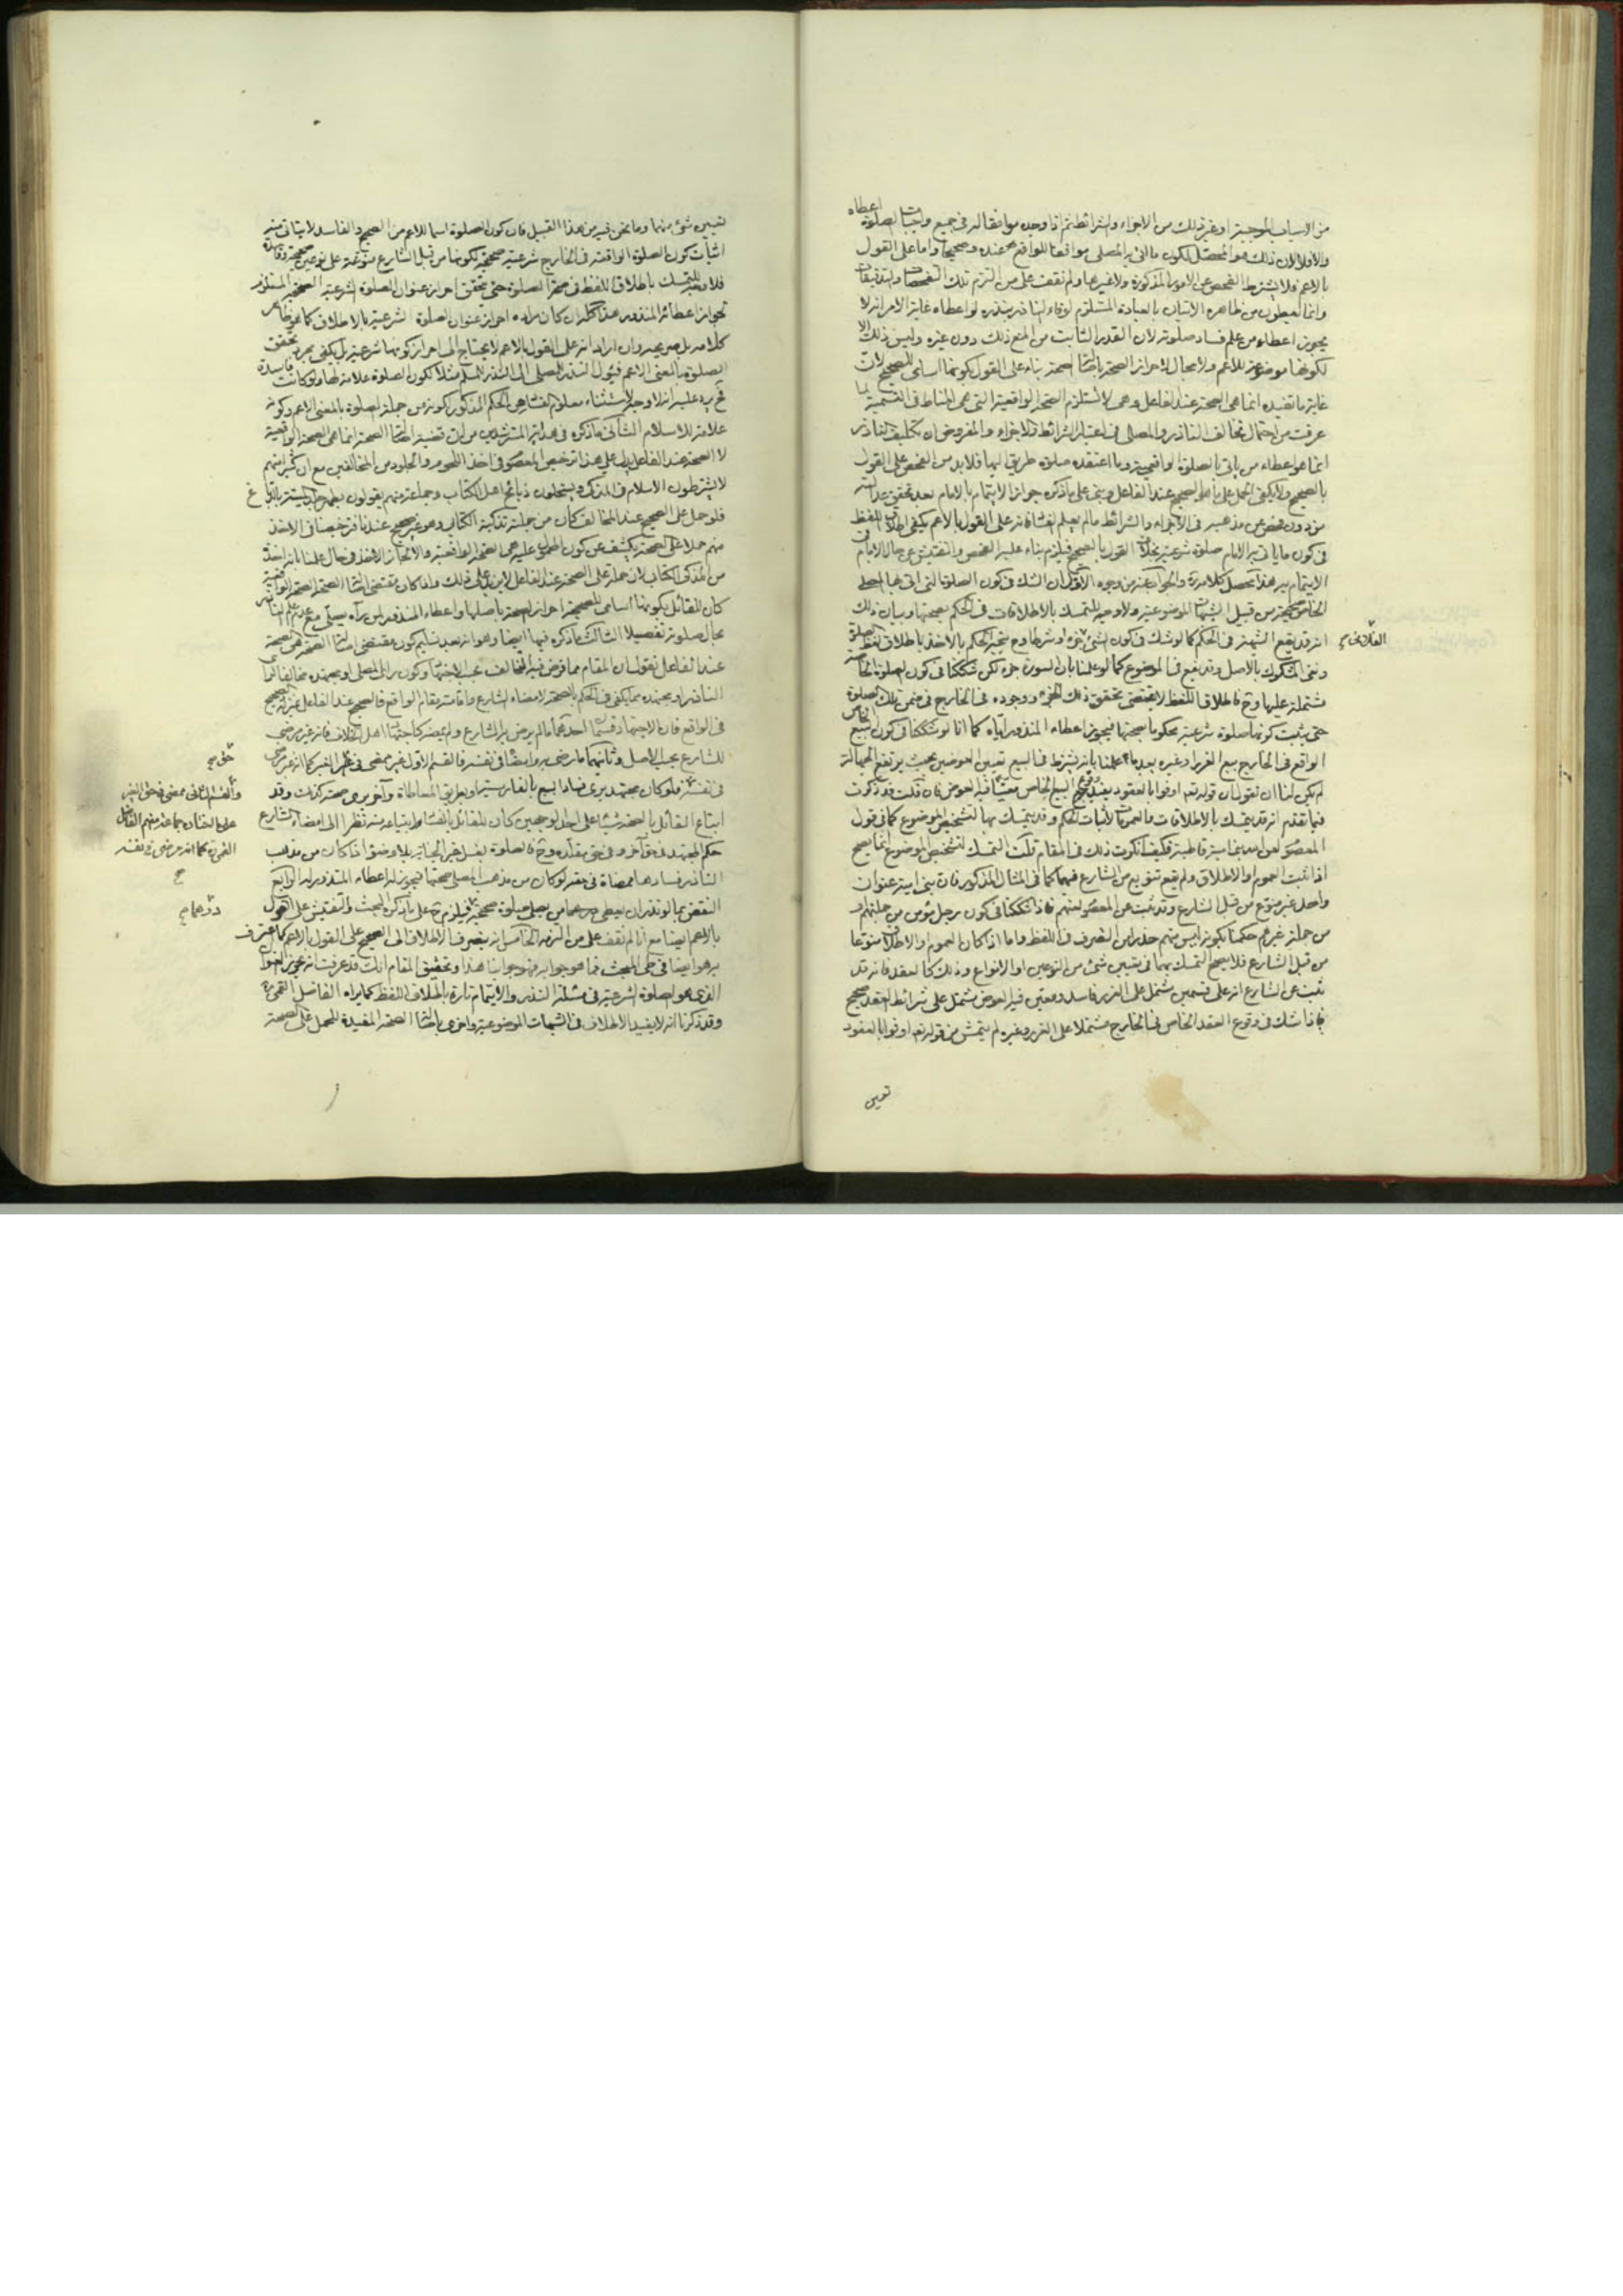 من الاسباب الموجبة او غير ذلك من الاجزاء والشرائط ثم اذا وجده موافقا له فى جميع واجبات الصلوة اعطاه
والا فلا لان ذلك هو المحصل لكون ما اتى به المصلى موافقا للواقع عنده وصحيحا واما على القول
بالاعم فلا يشترط الفحص عن الامور المذكورة ولا غيرها ولم نقف على من التزم تلك التفحصات والتدقيقات
وانما يعملون من ظاهره الاتيان بالعبادة المستلزم لوفاء الناذر بنذره لو اعطاه غاية الامر انه لا
يجوز اعطاء من علم فساد صلوته لان القدر الثابت من المنع ذلك دون غيره وليس ذلك الا
لكونها موضوعة للاعم ولا مجال لاحراز الصحة باصالة الصحة بناء على القول بكونها اسامى للصحيح لان
غاية ما تفيده انما هى الصحة عند الفاعل وهى لا تستلزم الصحة الواقعية التى هى المناط فى التسمية لما
عرفت من احتمال تخالف الناذر والمصلى فى اعتبار الشرائط والاجزاء والمفروض ان تكليف الناذر
انما هو اعطاء من ياتى بالصلوة الواقعية وما اعتقده صلوة طريق اليها فلا بد من الفحص على القول
بالصحيح ولا يكفى الحمل على الصحيح عند الفاعل وبنى على ما ذكره جواز الايتمام بالامام بعد تحقق عدالته
من دون فحص عن مذهبه فى الاجزاء والشرائط ما لم يعلم الفساد فانه على القول بالاعم يكفى اطلاق اللفظ
فى كون ما ياتى به الامام صلوة شرعية بخلاف القول بالصحيح فيلزم بناء عليه الفحص والتفتيش عن حال الامام فى
الايتمام به هذا محصل كلامه والجواب عنه من وجوه الاول ان الشك فى كون الصلوة التى اتى بها المصلى
الخاص صحيحة من قبيل الشبهات الموضوعية ولا وجه للتمسك بالاطلاقات فى الحكم بصحتها وبيان ذلك
انه قد يقع الشبهة فى الحكم كما لو شك فى كون الشئ جزء او شرطا وح يتجه الحكم بالاخذ باطلاق لفظ الصلوة
ونفى المشكوك بالاصل وقد يقع فى الموضوع كما لو علمنا بان السورة جزء لكن شككنا فى كون الصلوة الخاصة
مشتملة عليها وح فاطلاق اللفظ لا يقتضى تحقق ذلك الجزء ووجوده فى الخارج فى ضمن تلك الصلوة
حتى يثبت كونها صلوة شرعية محكوما بصحتها فيجوز اعطاء المنذور اياه كما انا لو شككنا فى كون البيع الخاص
الواقع فى الخارج بيع الغرر او غيره بعد ما علمنا بانه يشترط فى البيع تعيين العوضين بحيث يرتفع الجهالة
لم يكن لنا ان نقول ان قوله تعم اوفوا بالعقود يفيد وقوع البيع الخاص معينا فيه العوض فان قلت قد ذكرت
فيما تقدم انه قد يتمسك بالاطلاقات والعمومات لاثبات الحكم وقد يتمسك بها لتشخيص الموضوع كما فى قول
المعصوم لعن الله بنى امية قاطبة فكيف انكرت ذلك فى المقام قلت التمسك لتشخيص الموضوع انما يصح
اذا ثبت العموم او الاطلاق ولم يقع تنويع من الشارع فيهما كما فى المثال المذكور فان بنى امية عنوان
واحد غير منوع من قبل الشارع وقد ثبت عن المعصوم لعنهم فاذا شككنا فى كون رجل مؤمن من جملتهم او
من جملة غيرهم حكمنا بكونه ليس منهم حذرا من التصرف فى اللفظ واما اذا كان العموم او الاطلاق منوعا
من قبل الشارع فلا يصح التمسك بهما فى تعيين شئ من النوعين او الانواع وذلك كالعقد فانه قد
ثبت عن الشارع انه على قسمين مشتمل على الغرر فاسد ومعين فيه العوض مشتمل على شرائط العقد صحيح
فاذا شك فى وقوع العقد الخاص فى الخارج مشتملا على الغرر وغيره لم يتمش من قوله تعم اوفوا بالعقود
تعيين
لتعيين شئ منهما وما نحن فيه من هذا القبيل فان كون الصلوة اسما للاعم من الصحيح والفاسد لا يتاتى منه
اثبات كون الصلوة الواقعة فى الخارج شرعية صحيحة لكونها من قبل الشارع منوعة على نوعين صحيحة وفاسدة
فلا وجه للتمسك باطلاق اللفظ فى صحة الصلوة حتى يتحقق احراز عنوان الصلوة الشرعية الصحيحة المستلزم
لجواز اعطائه المنذور هذا كله ان كان مراده احراز عنوان الصلوة الشرعية بالاطلاق كما هو ظاهر
كلامه بل صريحه وان اراد انه على القول بالاعم لا يحتاج الى احراز كونها شرعية بل يكفى مجرد تحقق
الصلوة بالمعنى الاعم فيؤول النذر للمصلى الى النذر للمسلم مثلا لكون الصلوة علامة لها ولو كانت فاسدة
فح يرد عليه انه لا وجه لاستثناء معلوم الفساد عن الحكم المذكور لكونه من جملة الصلوة بالمعنى الاعم وكونه
علامة للاسلام الثانى ما ذكره فى هداية المسترشدين من ان قضية اصالة الصحة انما هى الصحة الواقعية
لا الصحة عند الفاعل يدل على هذا ترخيص المعصوم فى اخذ اللحوم والجلود من المخالفين مع ان كثيرا منهم
لا يشترطون الاسلام فى المذكى ويستحلون ذبائح اهل الكتاب وجماعة منهم يقولون بطهر جلد الميتة بالدباغ
فلو حمل على الصحيح عند المخالف كان من جملته تذكية الكتابى وهو غير صحيح عندنا فترخيصنا فى الاخذ
منهم حملا على الصحة يكشف عن كون المحمول عليه هى الصحة الواقعية والا لجاز الاخذ فى حال علمنا بانه اخذ
من المذكى الكتابى لان حمله على الصحة عند الفاعل لا يزيد على ذلك واذا كان مقتضى اصالة الصحة الصحة الواقعية
كان للقائل بكونها اسامى للصحيحة احراز الصحة باصلها واعطاء المنذور من يرآه يصلى مع عدم علم الناذر
بحال صلوته تفصيلا الثالث ما ذكره فيها ايضا وهو انه بعد تسليم كون مقتضى اصالة الصحة هى الصحة
عند الفاعل نقول ان المقام مما فرض فيه التخالف بحسب الاجتهاد وكون راى المصلى او مجتهده مخالفا لراى
الناذر او مجتهده مما يكفى فى الحكم بالصحة لامضاء الشارع واقامته مقام الواقع فالصحيح عند الفاعل بمنزلة الصحيح
فى الواقع فان الاجتهاد قسمان احدهما ما لم يرض به الشارع ولم يمضه كاجتهاد اهل الخلاف فانه غير مرضى
للشارع بحسب الاصل وثانيهما ما رضى به وامضاه فى نفسه فالقسم الاول غير ممضى فى حق الغير كما انه غير مرضى
فى نفسه فلو كان مجتهد يرى فساد البيع بالفارسية او بطريق المعاطاة وآخر يرى صحته كذلك وقد
ابتاع القائل بالصحة شيئا على احد الوجهين كان للقائل بالفساد ابتياعه منه نظرا الى امضاء الشارع
حكم المجتهد فى حق آخر وفى حق مقلده وح فالصلوة بغسل غير الجنابة بلا وضوء اذا كان من مذهب
الناذر فسادها ممضاة فى حقه لو كان من مذهب المصلى صحتها فيجوز له اعطاء المنذور له الرابع
النقض بما لو نذر ان يعطى درهما من يصلى صلوة صحيحة فيلزم ح على ما ذكره البحث والتفتيش على القول
بالاعم ايضا مع انا لم نقف على من التزمه الخامس انه ينصرف الاطلاق الى الصحيح على القول بالاعم كما اعترف
به هو ايضا فى طى المبحث فما هو جوابه فهو جوابنا هذا وتحقيق المقام انك قد عرفت انه يحرز العنوان
الذى هو الصلوة الشرعية فى مسئلة النذر والايتمام تارة باطلاق اللفظ كما يراه الفاضل القمى ره
وقد ذكرنا انه لا يفيد الاطلاق فى الشبهات الموضوعية واخرى باصالة الصحة المفيدة للحمل على الصحة
حق صح
والقسم الثانى ممضى فى حق الغير
على ما اختاره جماعة منهم الفاضل
القمى ره كما انه مرضى فى نفسه
صح